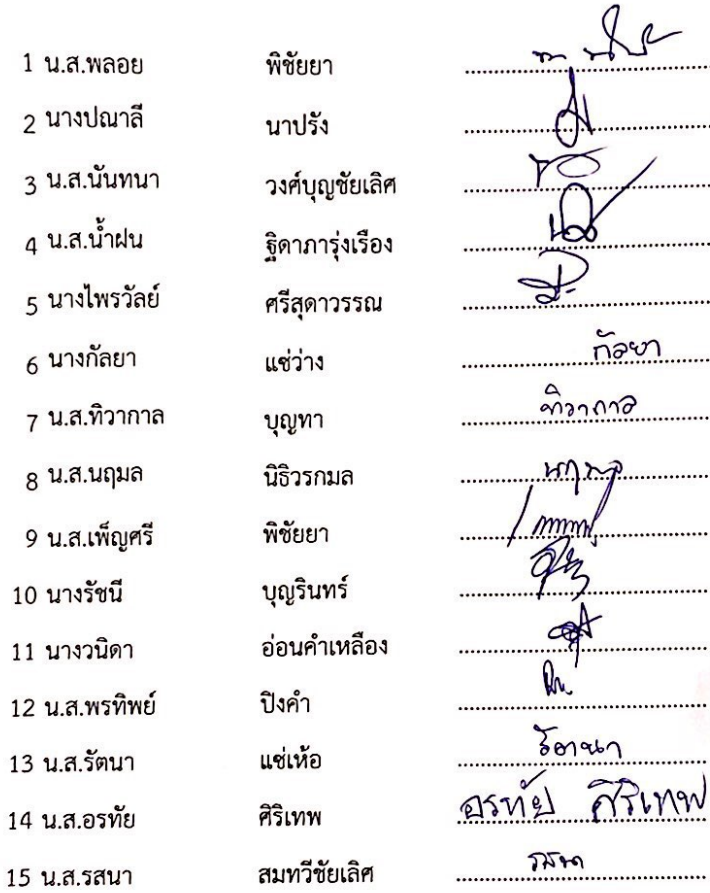 1 น.ส.พลอย พิชัยยา
2 นางปณาลี นาปรัง
3 น.ส.นันทนา วงศ์บุญชัยเลิศ
4 น.ส.น้ำฝน ฐิดาภารุ่งเรือง
5 นางไพรวัลย์ ศรีสุดาวรรณ
6 นางกัลยา แซ่ว่าง กัลยา
7 น.ส.ทิวากาล บุญทา ทิวากาล
8 น.ส.นฤมล นิธิวรกมล นฤมล
9 น.ส.เพ็ญศรี พิชัยยา
10 นางรัชนี บุญรินทร์
11 นางวนิดา อ่อนคำเหลือง
12 น.ส.พรทิพย์ ปิงคำ
13 น.ส.รัตนา แซ่เห้อ
14 น.ส.อรทัย ศิริเทพ อรทัย ศิริเทพ
15 น.ส.รสนา สมทวีชัยเลิศ รสนา